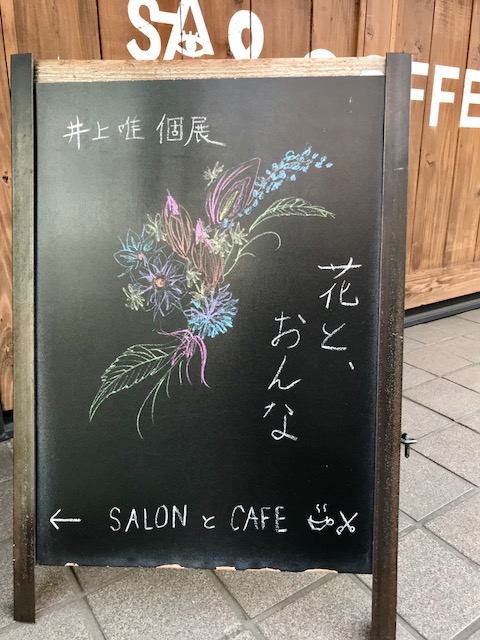 井上唯 個展
花と、
おんな
← SALON と CAFE
FFEE